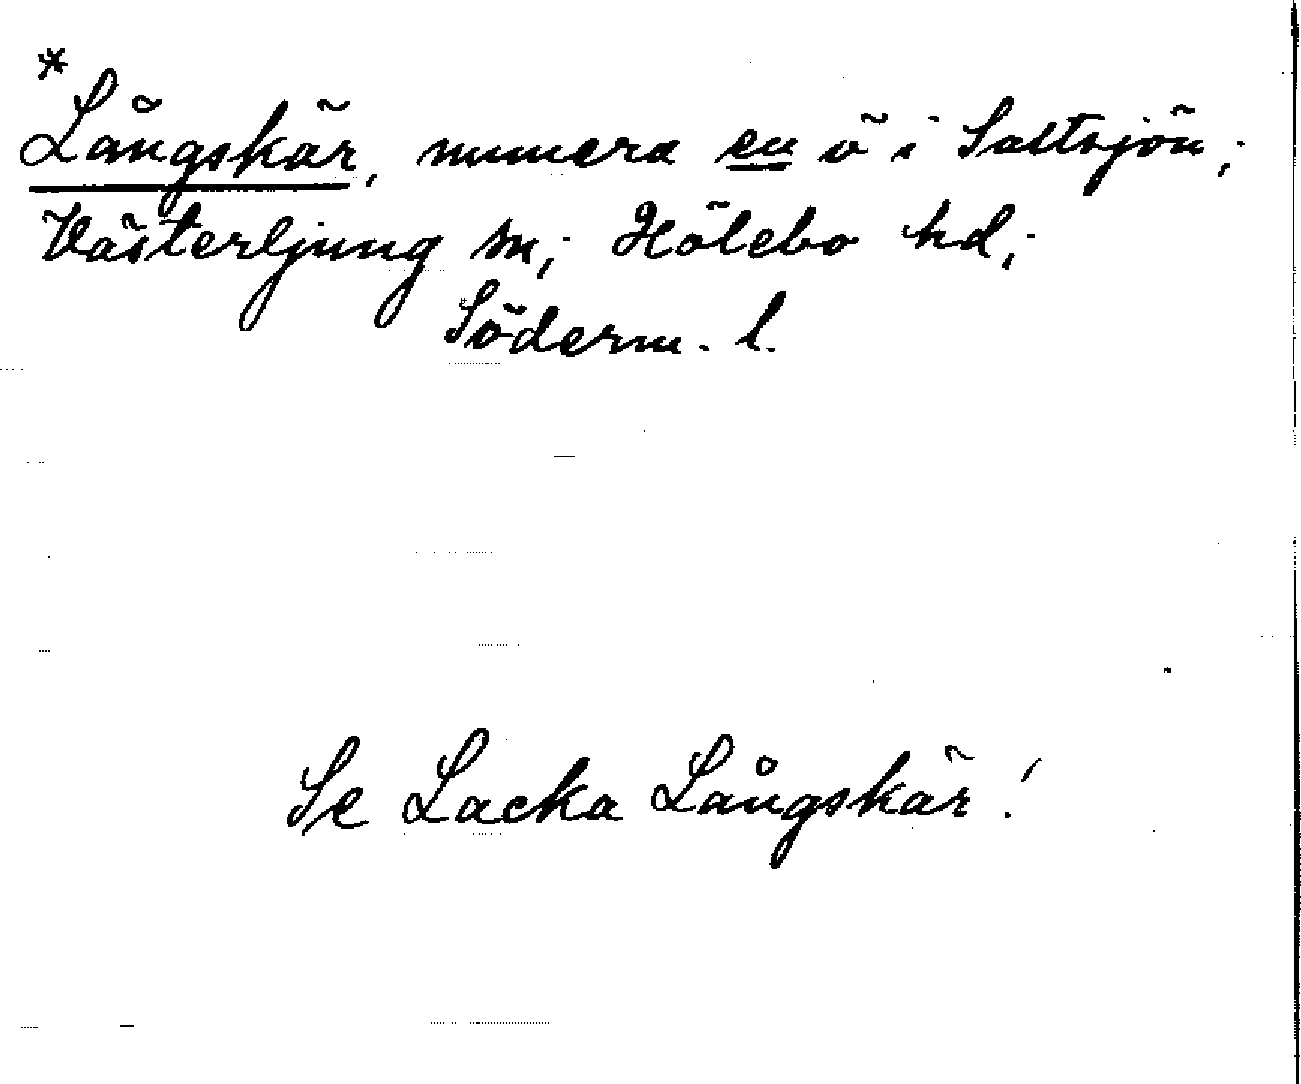 *
Långskär, numera en ö i Saltsjön;
Västerljung sn; Hölebo hd;
Söderm. l.
Se Lacka Långskär!